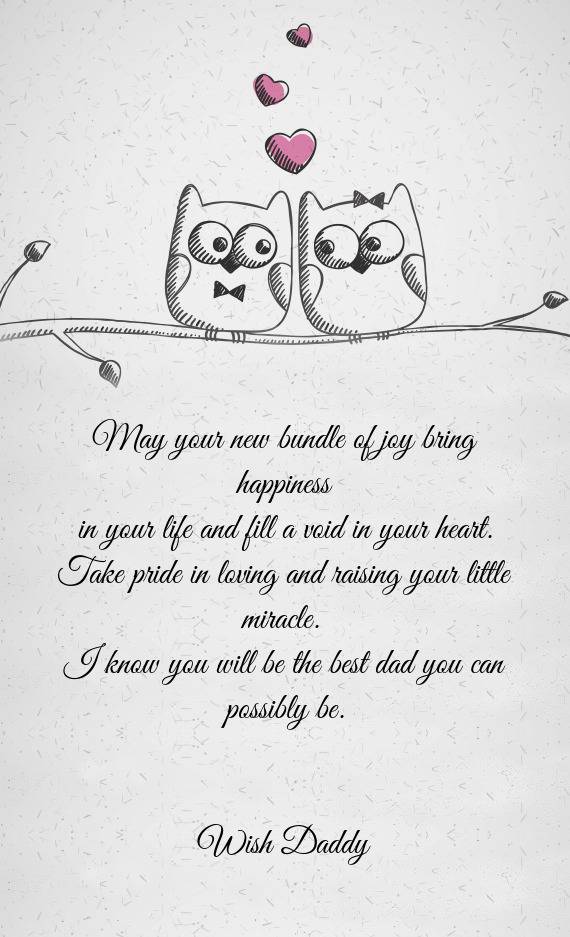 May your new bundle of joy bring
happiness
in your life and fill a void in your heart.
Take pride in loving and raising your little
miracle.
I know you will be the best dad you can
possibly be.
Wish Daddy